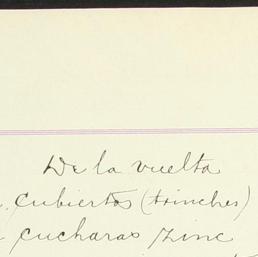 De la vuelta
cubiertos (trinches)
cucharas zinc